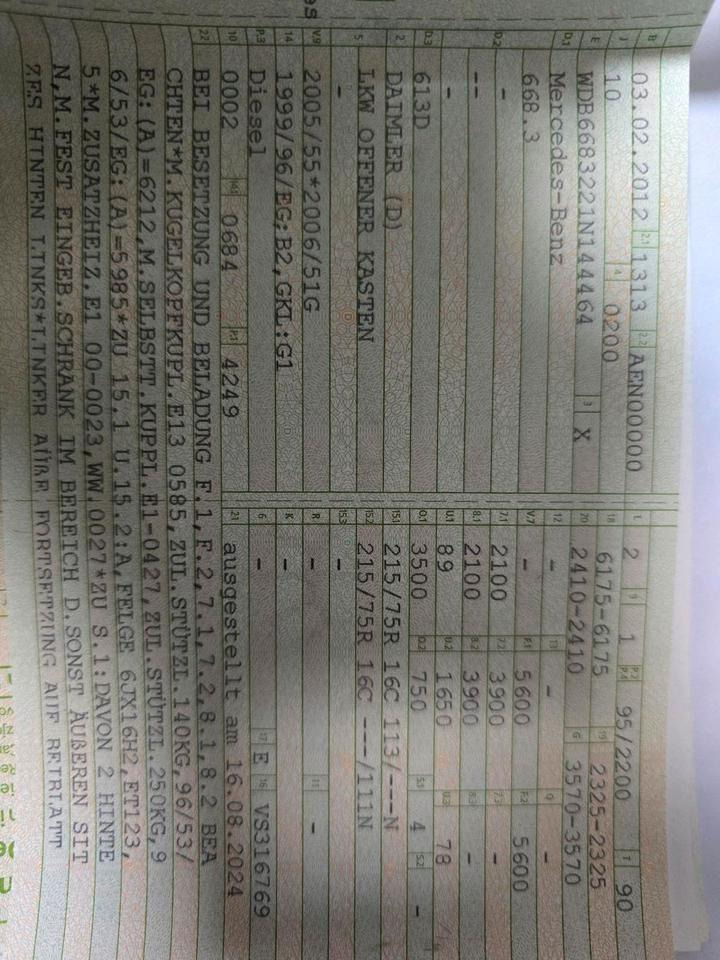 B 03.02.2012 2.1 1313 2.2 AEN00000 L 2 9 1 P.2 P.4 95/2200 T 90
J 10 4 0200 18 6175-6175 19 2325-2325
E WDB6683221N144464 3 X 20 2410-2410 G 3570-3570
D.1 Mercedes-Benz 12 - 13 - Q -
668.3 V.7 - F.1 5600 F.2 5600
D.2 - 7.1 2100 7.2 3900 7.3 -
-- 8.1 2100 8.2 3900 8.3 -
- U.1 89 U.2 1650 U.3 78
D.3 613D O.1 3500 O.2 750 S.1 4 S.2 -
2 DAIMLER (D) 15.1 215/75R 16C 113/---N
5 LKW OFFENER KASTEN 15.2 215/75R 16C ---/111N
- 15.3 -
V.9 2005/55*2006/51G R - 11 -
14 1999/96/EG;B2,GKL:G1 K -
P.3 Diesel 6 - 17 E 16 VS316769
10 0002 14.1 0684 P.1 4249 21 ausgestellt am 16.08.2024
22 BEI BESETZUNG UND BELADUNG F.1,F.2,7.1,7.2,8.1,8.2 BEA
CHTEN*M.KUGELKOPFKUPL.E13 0585,ZUL.STÜTZL.140KG,96/53/
EG:(A)=6212,M.SELBSTT.KUPPL.E1-0427,ZUL.STÜTZL.250KG,9
6/53/EG:(A)=5985*ZU 15.1 U.15.2:A.FELGE 6JX16H2,ET123,
5*M.ZUSATZHEIZ.E1 00-0023,WW.0027*ZU S.1:DAVON 2 HINTE
N,M.FEST EINGEB.SCHRANK IM BEREICH D.SONST ÄUßEREN SIT
ZES HINTEN LINKS*LINKER AUßE FORTSETZUNG AUF BEIBLATT